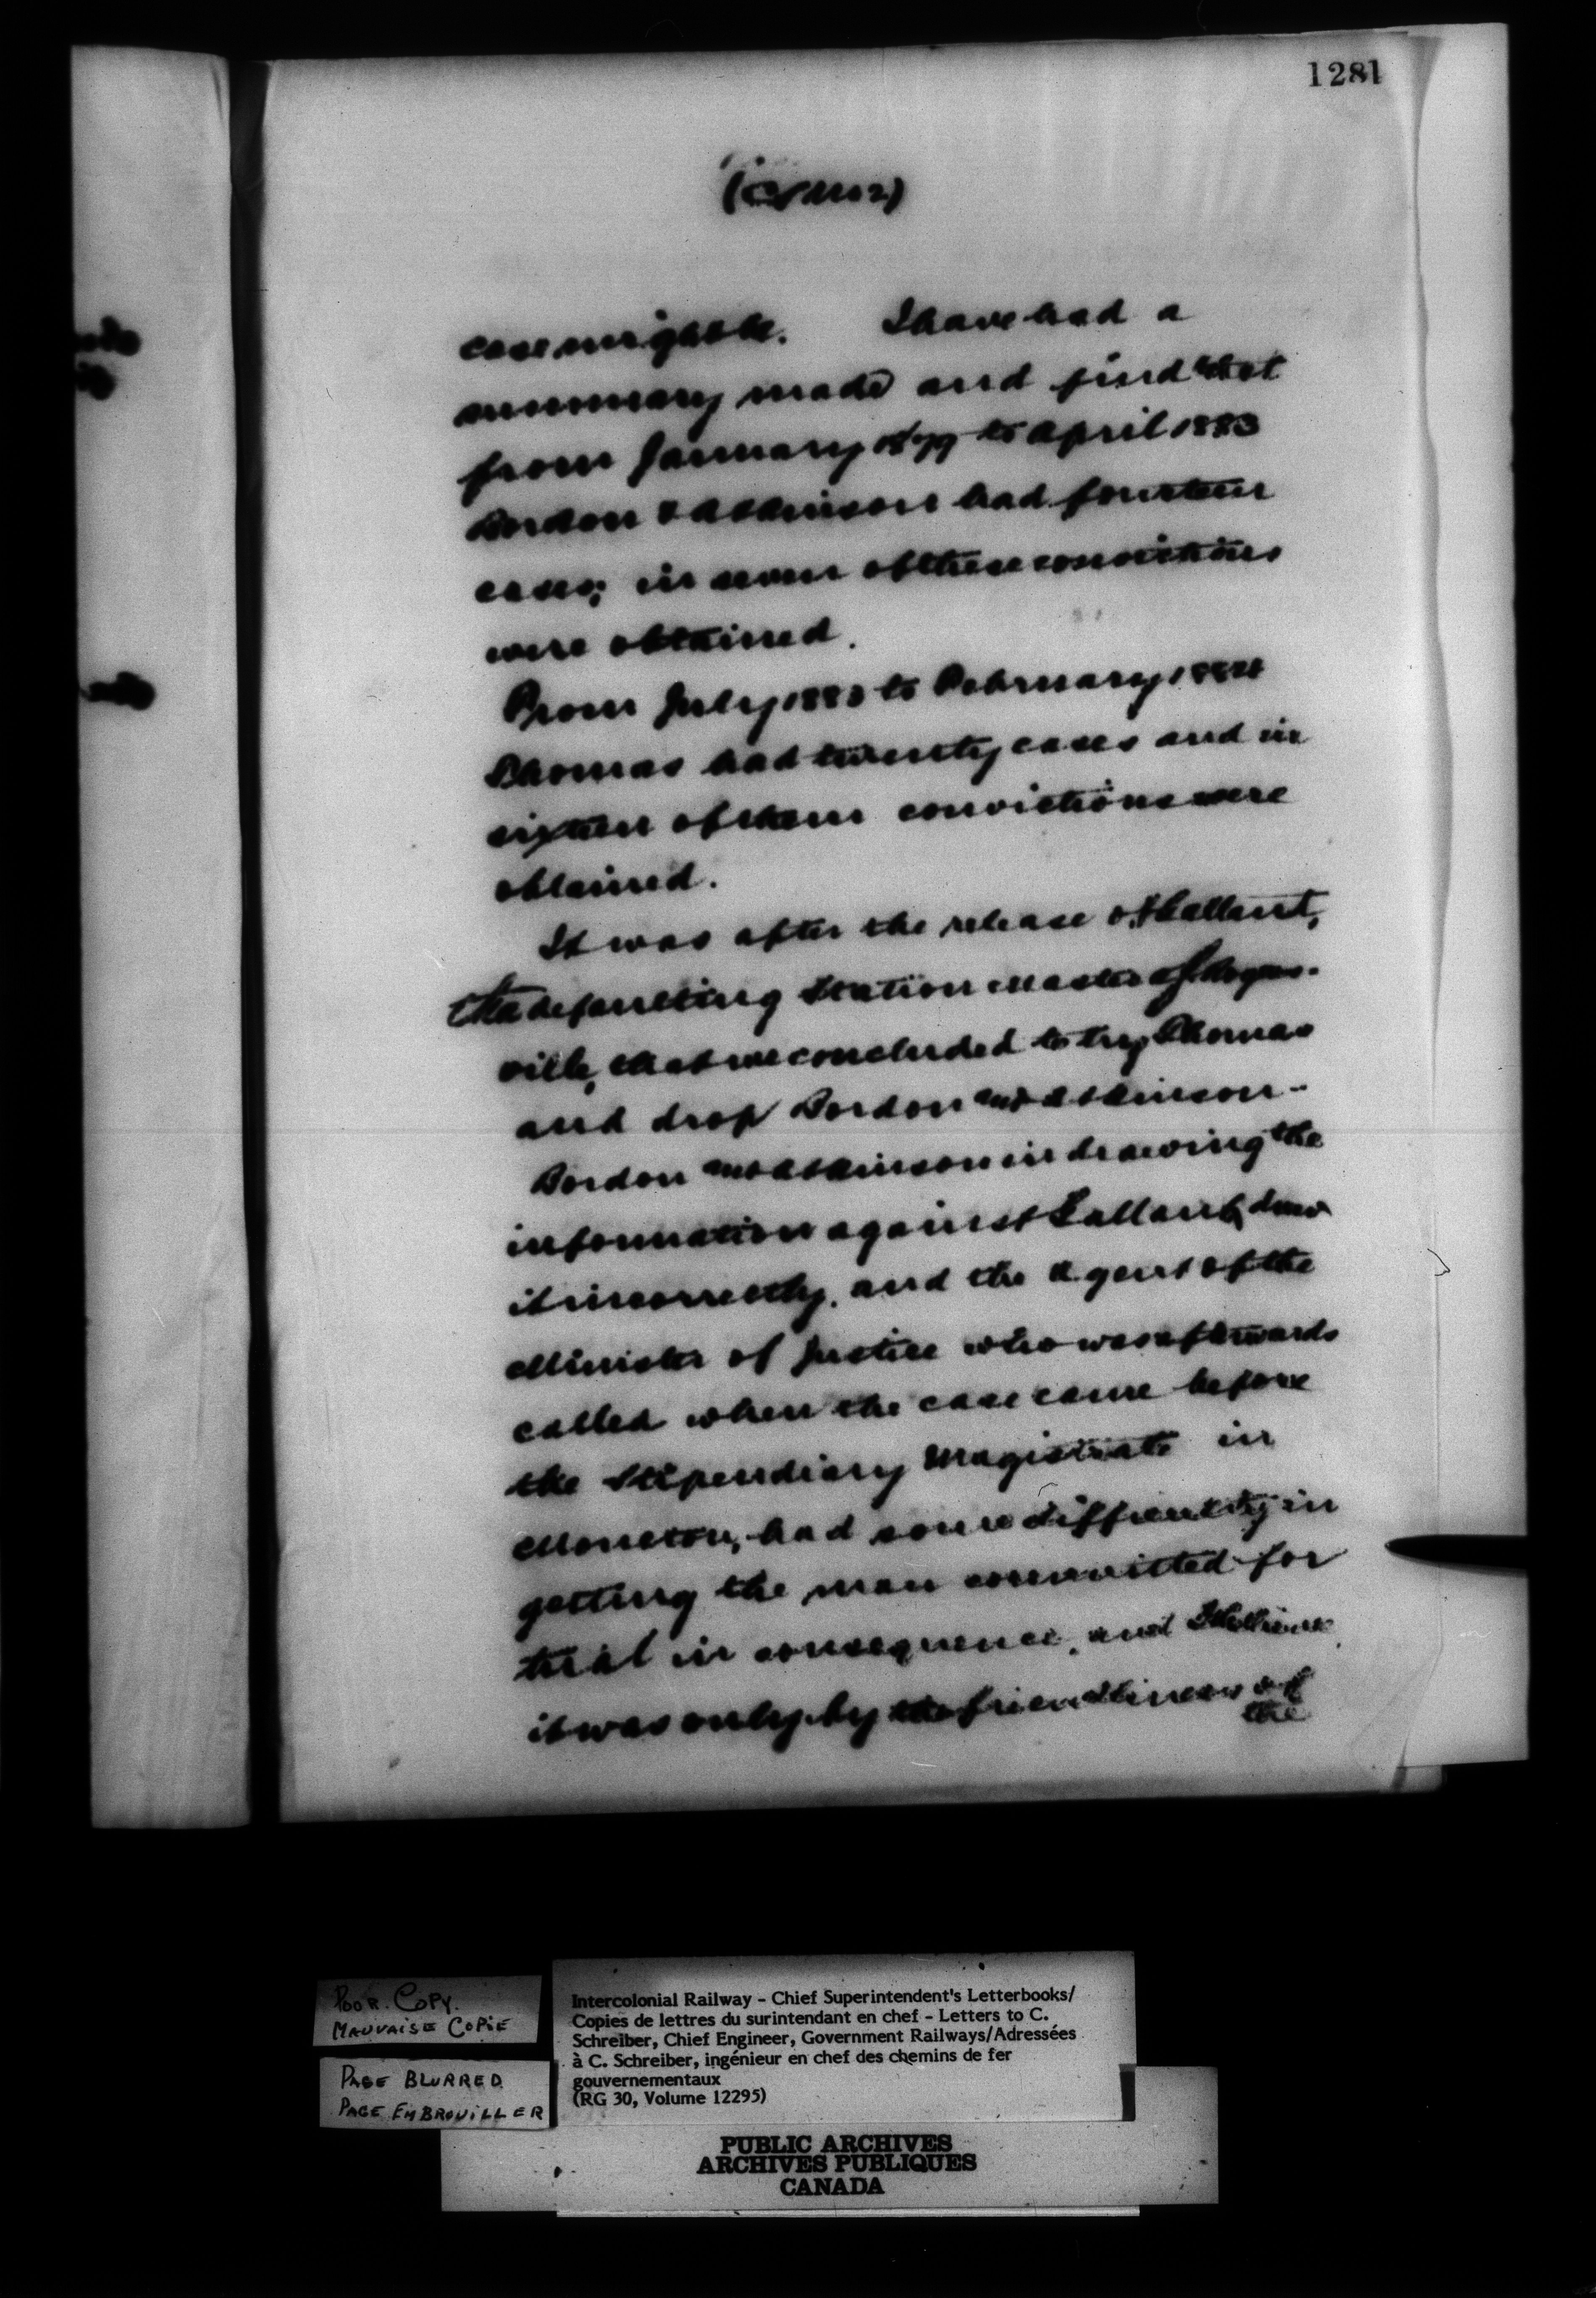 1281
case might be. I have had a
summary made and find that
from January 1879 to April 1883
Bordon & Atkinson had fourteen
cases; in seven of these convictions
were obtained.
From July 1883 to February 1884
Thomas had twenty cases and in
sixteen of them convictions were
obtained.
It was after the release of Gallant,
the defaulting Station Master of Rogers-
ville, that we concluded to try Thomas
and drop Bordon and Atkinson -
Bordon and Atkinson in drawing the
information against Gallant, drew
it incorrectly, and the Agent of the
Minister of Justice who was afterwards
called when the case came before
the Stipendiary Magistrate in
Moncton, had some difficulty in
getting the man committed for
trial in consequence, and I believe
it was only by the friendliness of
the
POOR. COPY.
MAUVAISE COPIE
PAGE BLURRED
PAGE EMBROUILLER
Intercolonial Railway - Chief Superintendent's Letterbooks/
Copies de lettres du surintendant en chef - Letters to C.
Schreiber, Chief Engineer, Government Railways/Adressées
à C. Schreiber, ingénieur en chef des chemins de fer
gouvernementaux
(RG 30, Volume 12295)
PUBLIC ARCHIVES
ARCHIVES PUBLIQUES
CANADA